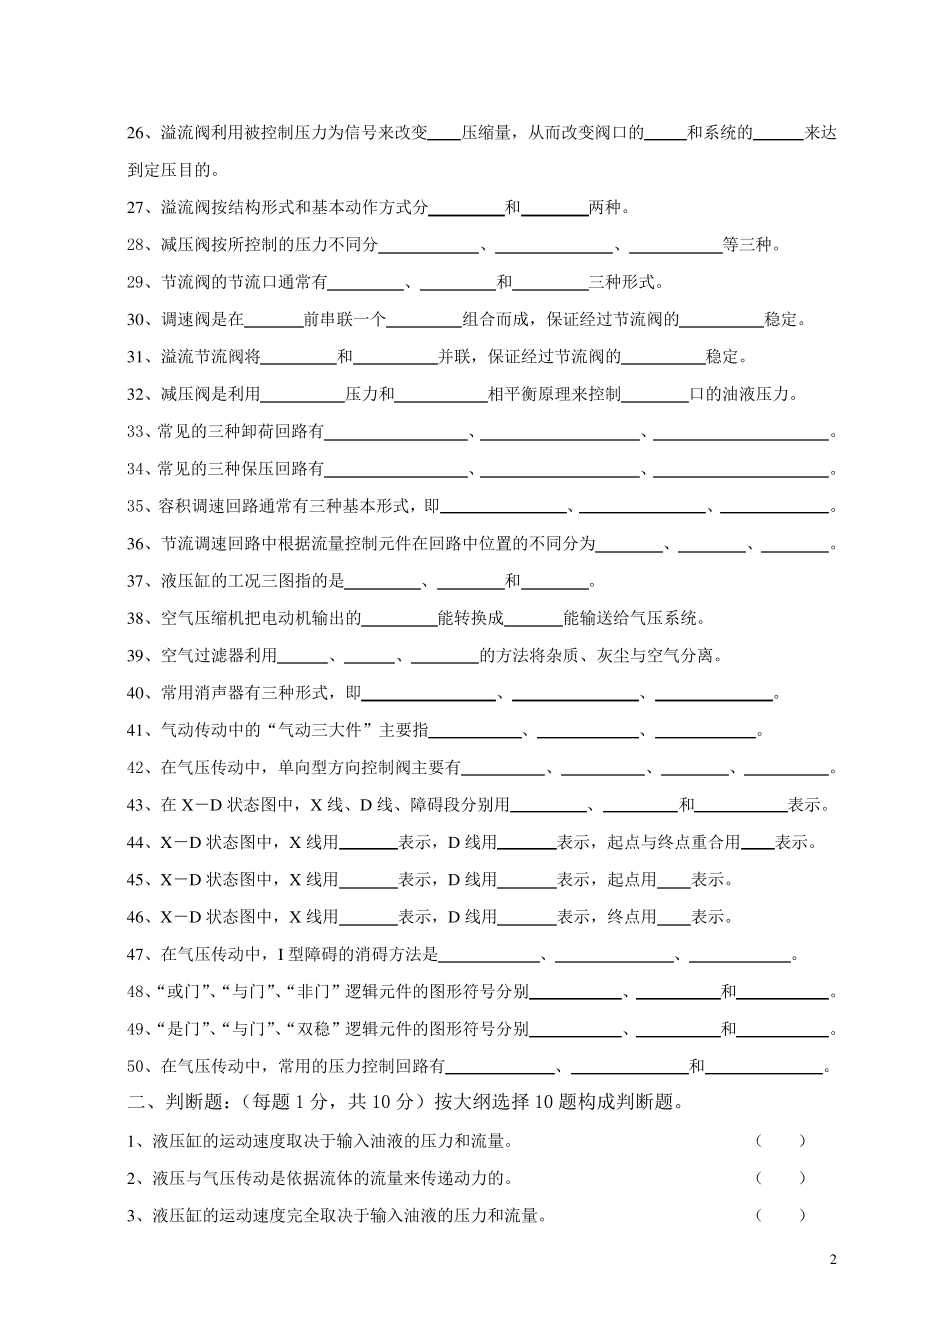 26、溢流阀利用被控制压力为信号来改变____压缩量，从而改变阀口的_____和系统的______来达
到定压目的。
27、溢流阀按结构形式和基本动作方式分_________和________两种。
28、减压阀按所控制的压力不同分____________、______________、___________等三种。
29、节流阀的节流口通常有_________、_________和_________三种形式。
30、调速阀是在_______前串联一个_________组合而成，保证经过节流阀的__________稳定。
31、溢流节流阀将_________和__________并联，保证经过节流阀的__________稳定。
32、减压阀是利用__________压力和___________相平衡原理来控制________口的油液压力。
33、常见的三种卸荷回路有_________________、___________________、_____________________。
34、常见的三种保压回路有_________________、___________________、_____________________。
35、容积调速回路通常有三种基本形式，即_______________、_______________、_____________。
36、节流调速回路中根据流量控制元件在回路中位置的不同分为________、________、________。
37、液压缸的工况三图指的是_________、________和________。
38、空气压缩机把电动机输出的_________能转换成_______能输送给气压系统。
39、空气过滤器利用______、______、________的方法将杂质、灰尘与空气分离。
40、常用消声器有三种形式，即________________、_______________、______________。
41、气动传动中的“气动三大件”主要指___________、____________、____________。
42、在气压传动中，单向型方向控制阀主要有__________、__________、________、__________。
43、在 X－D 状态图中，X 线、D 线、障碍段分别用_________、_________和___________表示。
44、X－D 状态图中，X 线用_______表示，D 线用_______表示，起点与终点重合用____表示。
45、X－D 状态图中，X 线用_______表示，D 线用_______表示，起点用____表示。
46、X－D 状态图中，X 线用_______表示，D 线用_______表示，终点用____表示。
47、在气压传动中，I 型障碍的消碍方法是____________、______________、____________。
48、“或门”、“与门”、“非门”逻辑元件的图形符号分别___________、__________和___________。
49、“是门”、“与门”、“双稳”逻辑元件的图形符号分别___________、__________和___________。
50、在气压传动中，常用的压力控制回路有_____________、______________和______________。
二、判断题：（每题 1 分，共 10 分）按大纲选择 10 题构成判断题。
1、液压缸的运动速度取决于输入油液的压力和流量。 （ ）
2、液压与气压传动是依据流体的流量来传递动力的。 （ ）
3、液压缸的运动速度完全取决于输入油液的压力和流量。 （ ）
2